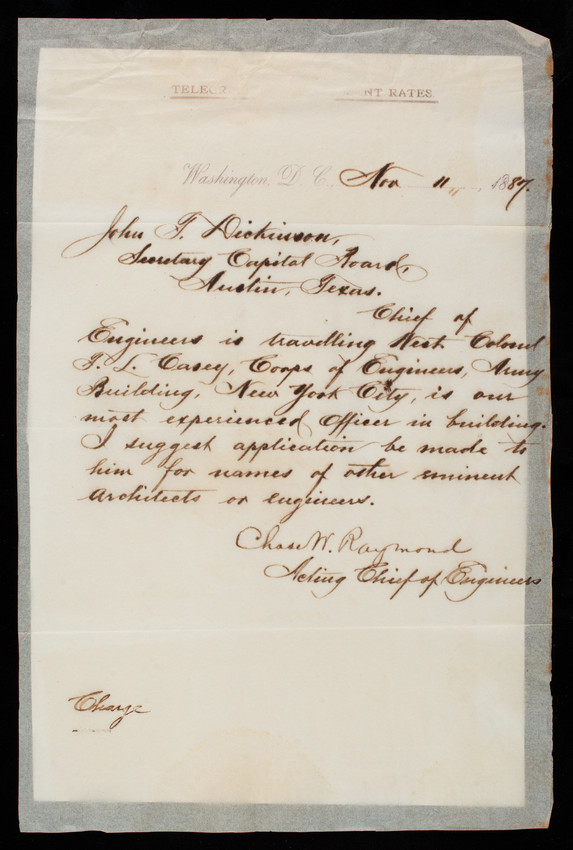 TELEGR NT RATES.
Washington, D. C., Nov 11, 1887.
John T. Dickinson,
Secretary Capital Board,
Austin, Texas.
Chief of
Engineers is travelling West Colonel
T. L. Casey, Corps of Engineers, Army
Building, New York City, is our
most experienced officer in building.
I suggest application be made to
him for names of other eminent
architects or engineers.
Chas W. Raymond
Acting Chief of Engineers
Charge